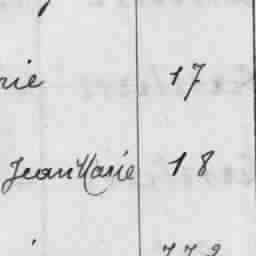 rie 17
Jean Marie 18